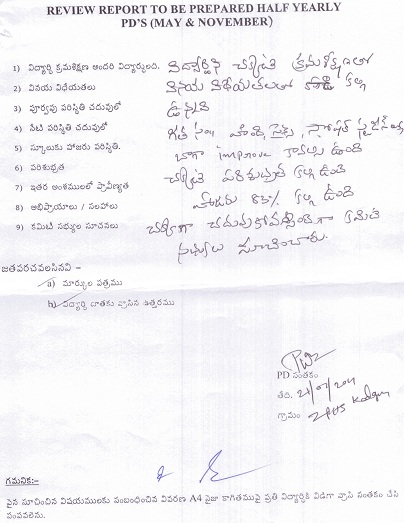 REVIEW REPORT TO BE PREPARED HALF YEARLY
PD'S (MAY & NOVEMBER)
1) విద్యార్థి క్రమశిక్షణ అందరి విద్యార్థులది.
విద్యార్థిని చక్కటి క్రమశిక్షణలో
2) వినయ విధేయతలు
వినయ విధేయతలలో కూడి కల్గి
3) పూర్వపు పరిస్థితి చదువులో
ఉన్నది
4) నేటి పరిస్థితి చదువులో
గత సం॥ హిందీ, సైన్సు, సోషల్
5) స్కూలుకు హాజరు పరిస్థితి.
బాగా improve కావలసి ఉంది
6) పరిశుభ్రత
చక్కటి పరిశుభ్రత కల్గి ఉంది
7) ఇతర అంశములలో ప్రావీణ్యత
8) అభిప్రాయాలు / సలహాలు
హాజరు 83% కల్గి ఉంది
9) కమిటి సభ్యుల సూచనలు
చక్కగా చదువుకోవలసిందిగా కమిటి
సభ్యులు సూచించారు.
జతపరచవలసినవి –
a) మార్కుల పత్రము
b) విద్యార్థి దాతకు వ్రాసిన ఉత్తరము
PD సంతకం
తేది. 21/07/2011
గ్రామం ZPHS
గమనిక:–
పైన సూచించిన విషయములకు సంబంధించిన వివరణ A4 సైజు కాగితముపై ప్రతి విద్యార్థికి విడిగా వ్రాసి సంతకం చేసి
పంపవలెను.